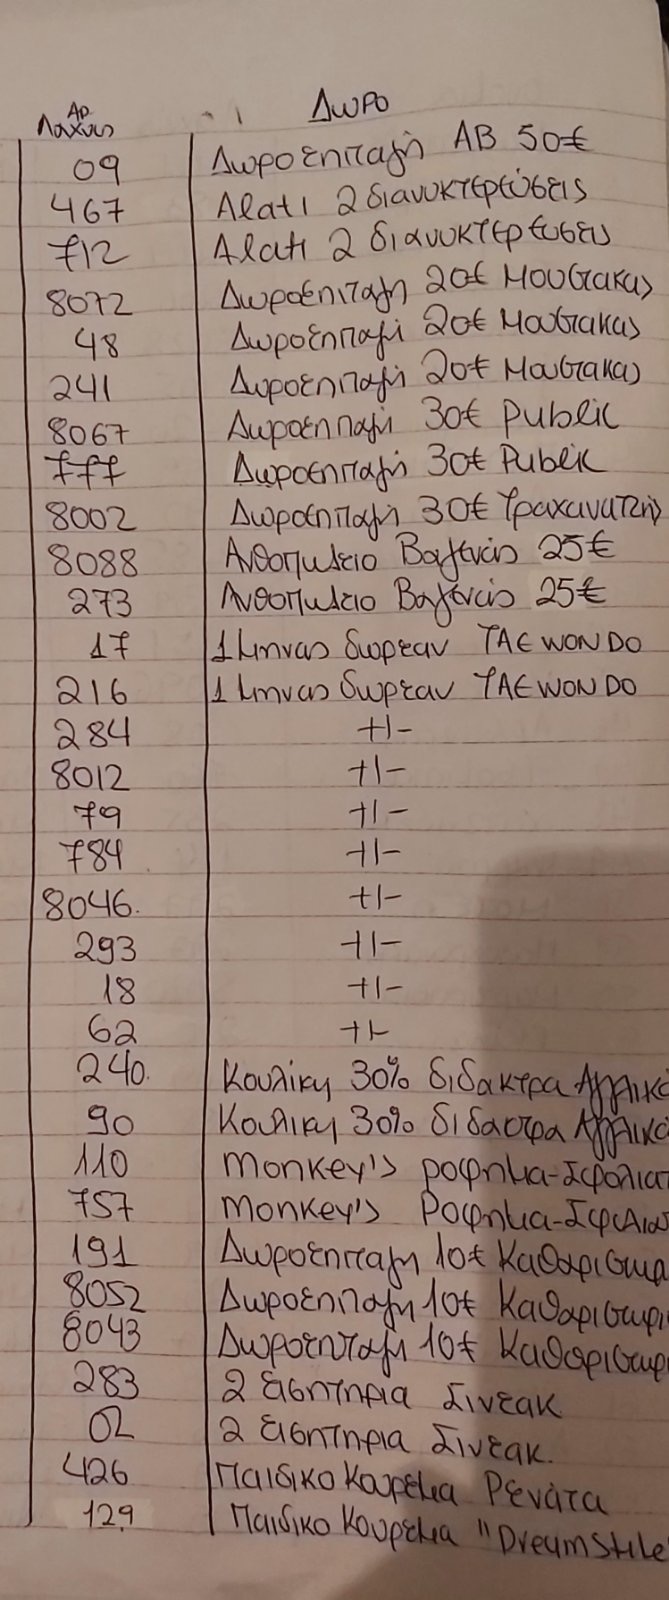 Αρ. Λαχνος Δωρο
09 Δωροεπιταγή ΑΒ 50€
467 Alati 2 διανυκτερεύσεις
712 Alati 2 διανυκτερευσεις
8072 Δωροεπιταγη 20€ Μουστακας
48 Δωροεπιταγή 20€ Μουστακας
241 Δωροεπιταγή 20€ Μουστακας
8067 Δωροεπιταγή 30€ Public
777 Δωροεπιταγή 30€ Public
8002 Δωροεπιταγή 30€ Τραχανατζής
8088 Ανθοπωλειο Βαγενάς 25€
273 Ανθοπωλειο Βαγενάς 25€
17 1 μηνας δωρεαν TAEWONDO
216 1 μηνας δωρεαν TAEWONDO
284 +|-
8012 +|-
79 +|-
784 +|-
8046. +|-
293 +|-
18 +|-
62 +|-
240. 30% διδακτρα Αγγλικ
90 30% διδακτρα Αγγλικ
110 Monkey's ροφημα-Σφολιατ
757 Monkey's Ροφημα-Σφολια
191 Δωροεπιταγη 10€ Καθαριστηρ
8052 Δωροεπιταγη 10€ Καθαριστηρι
8043 Δωροεπιταγη 10€ Καθαριστηρ
283 2 εισητηρια Σινεακ
02 2 εισητηρια Σινεακ.
426 Παιδικο Κουρεμα Ρενάτα
129 Παιδικο Κουρεμα "Dreamstile"